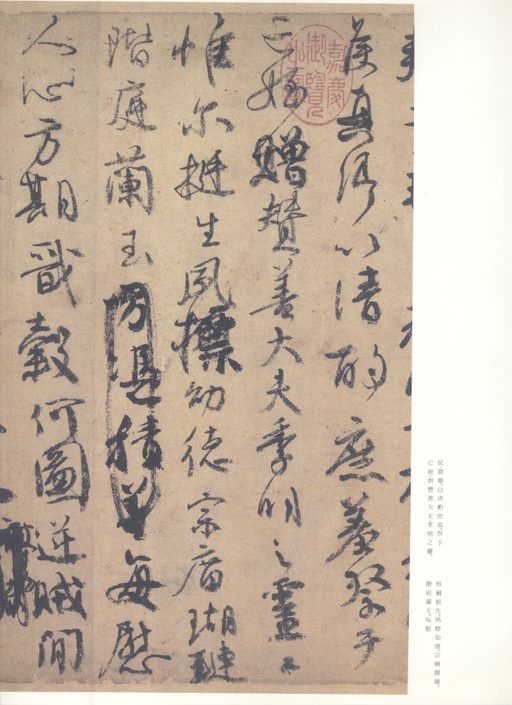 侯真卿以清酌庶羞祭于
亡姪贈贊善大夫季明之靈曰
惟尔挺生夙標幼德宗廟瑚璉
階庭蘭玉方憑積善每慰
人心方期戩穀何圖逆賊閒
嘉慶御覽之寶
侯眞卿。以清酌庶羞。祭于
亡姪贈贊善大夫季明之靈。
惟爾挺生。夙標幼德。宗廟瑚璉。
階庭蘭玉。每慰